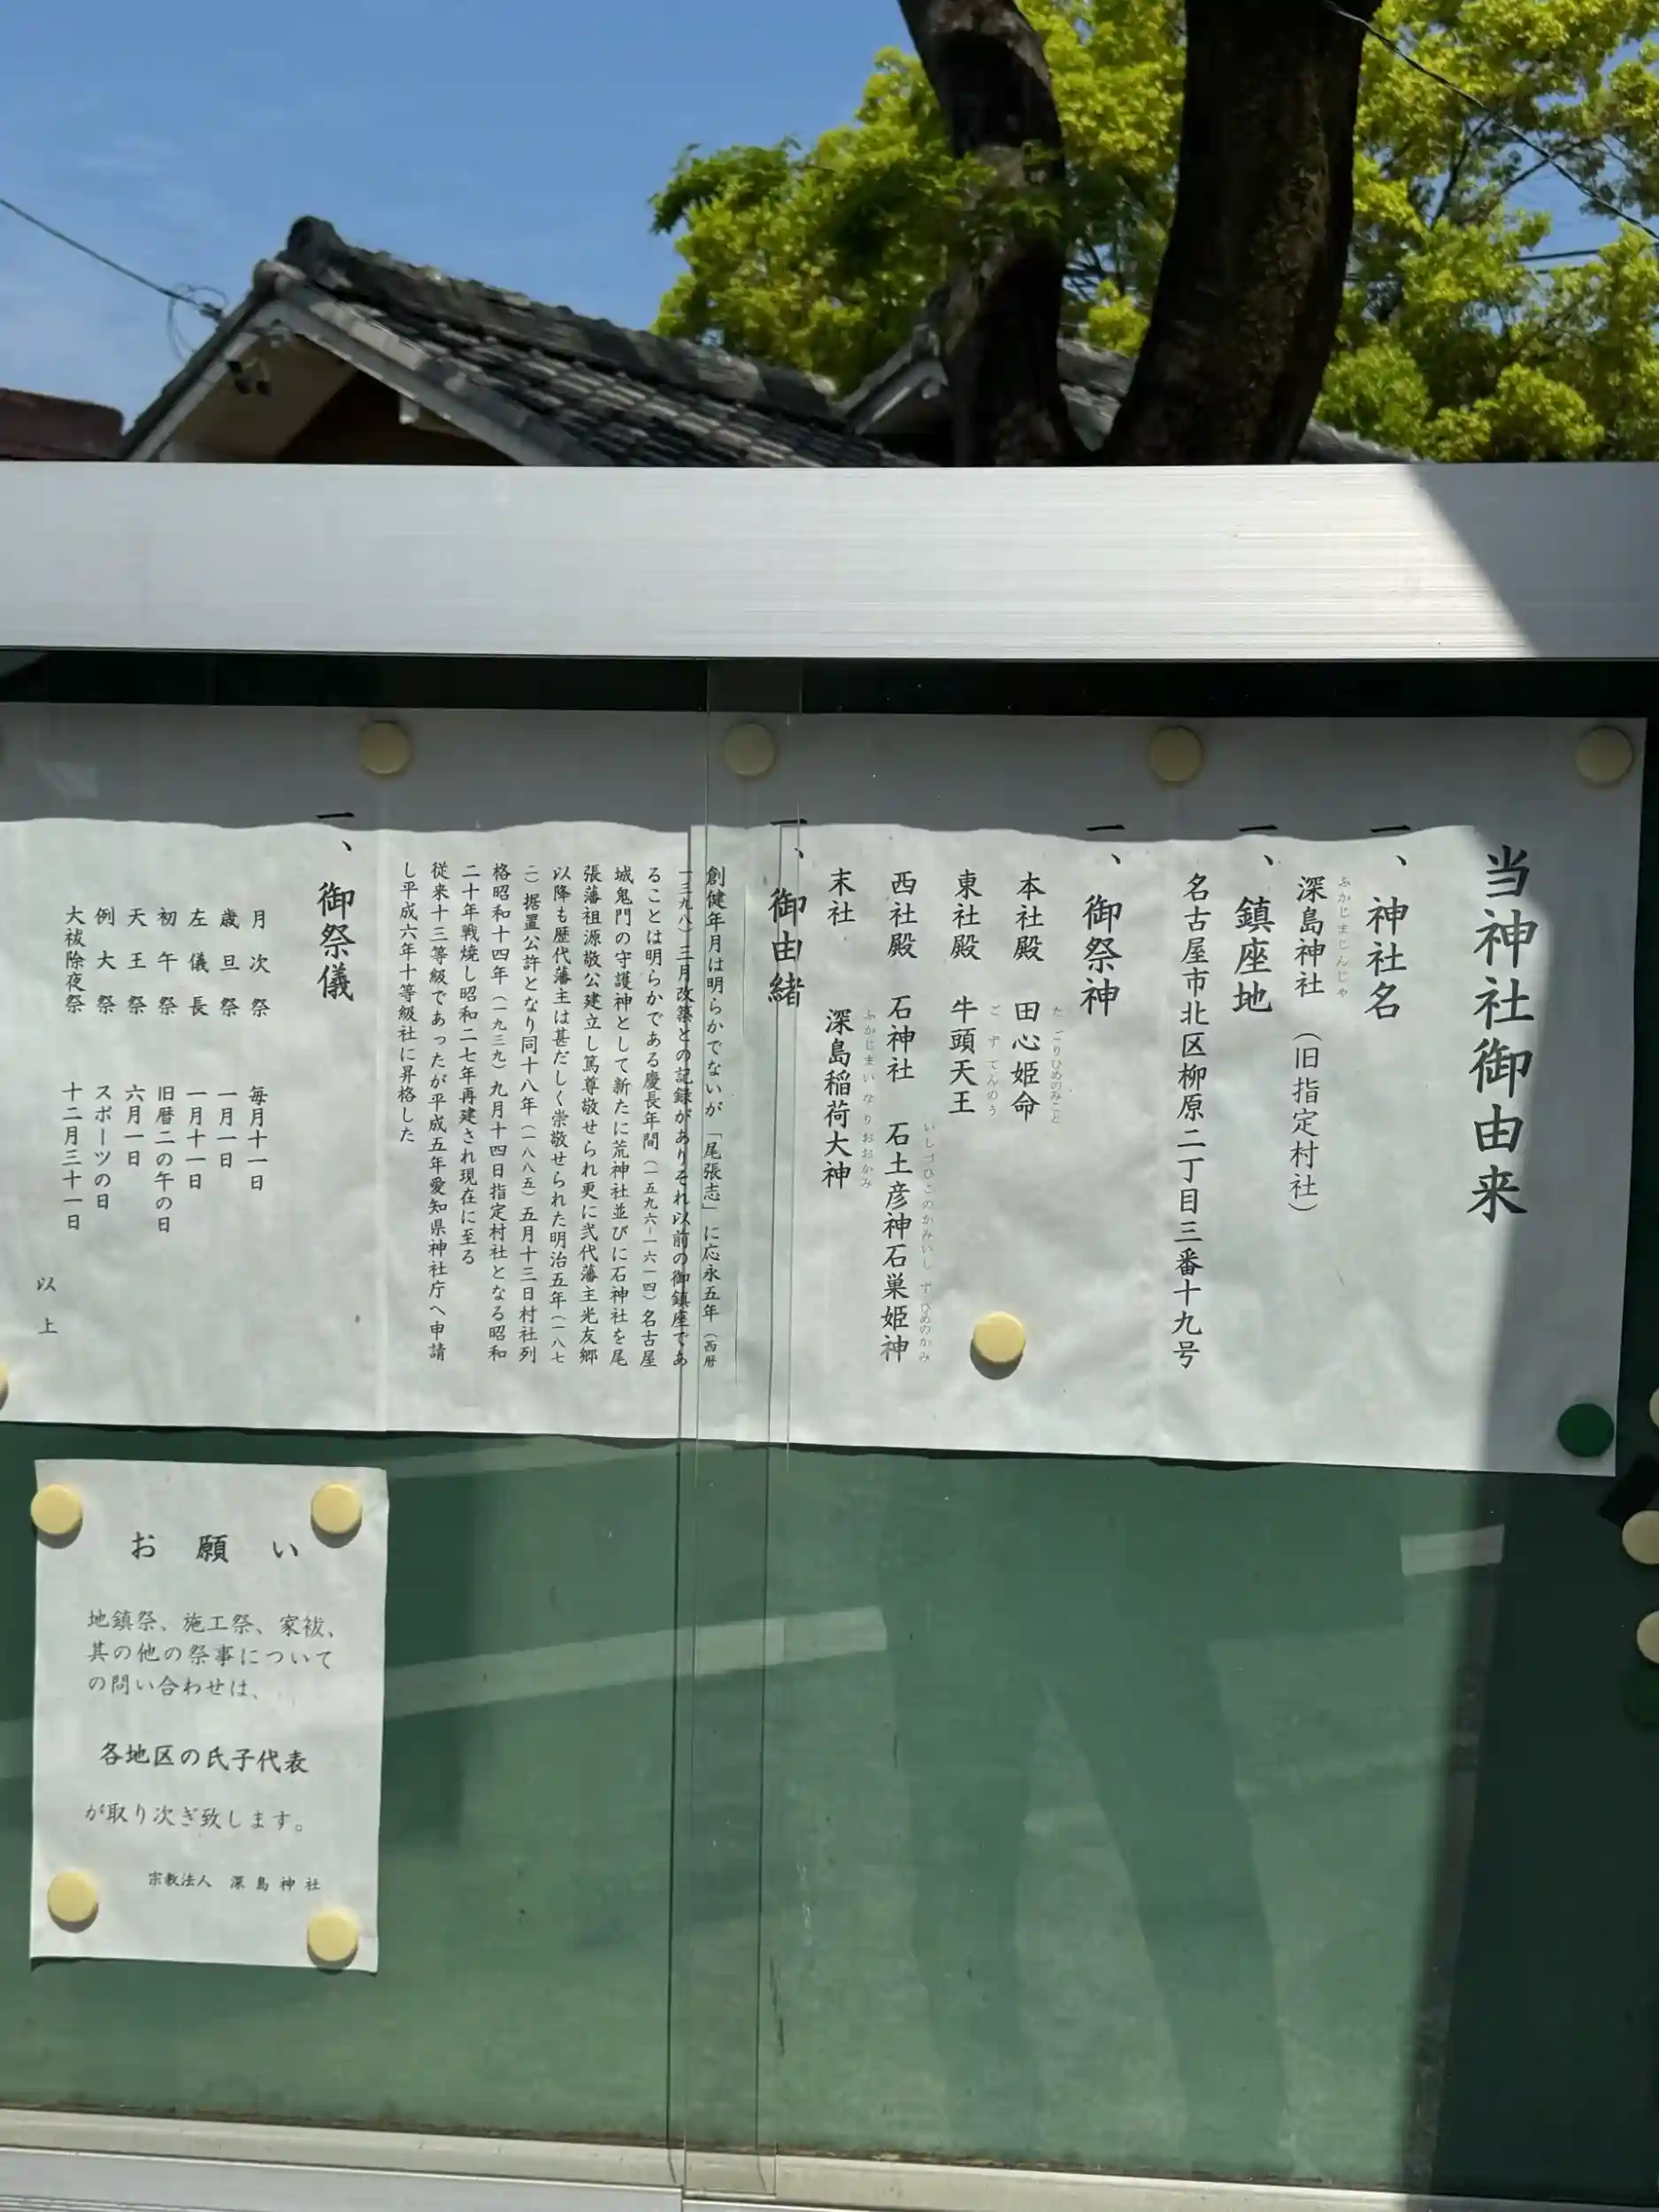 当神社御由来
一、神社名
深島神社 (旧指定村社)
ふかじまじんじゃ
一、鎮座地
名古屋市北区柳原二丁目三番十九号
一、御祭神
本社殿 田心姫命
たごりひめのみこと
東社殿 牛頭天王
ごずてんのう
西社殿 石神社 石土彦神石巣姫神
いしづひこのかみいしずひめのかみ
末社 深島稲荷大神
ふかじまいなりおおかみ
一、御由緒
創健年月は明らかでないが「尾張志」に応永五年(西暦
一三九八)三月改築との記録がありそれ以前の御鎮座であ
ることは明らかである慶長年間(一五九六-一六一四)名古屋
城鬼門の守護神として新たに荒神社並びに石神社を尾
張藩祖源敬公建立し篤尊敬せられ更に弐代藩主光友郷
以降も歴代藩主は甚だしく崇敬せられた明治五年(一八七
二)据置公許となり同十八年(一八八五)五月十三日村社列
格昭和十四年(一九三九)九月十四日指定村社となる昭和
二十年戦焼し昭和二七年再建され現在に至る
従来十三等級であったが平成五年愛知県神社庁へ申請
し平成六年十等級社に昇格した
一、御祭儀
月次祭 毎月十一日
歳旦祭 一月一日
左儀長 一月十一日
初午祭 旧暦二の午の日
天王祭 六月一日
例大祭 スポーツの日
大祓除夜祭 十二月三十一日
以上
お願い
地鎮祭、施工祭、家祓、
其の他の祭事について
の問い合わせは、
各地区の氏子代表
が取り次ぎ致します。
宗教法人 深島神社